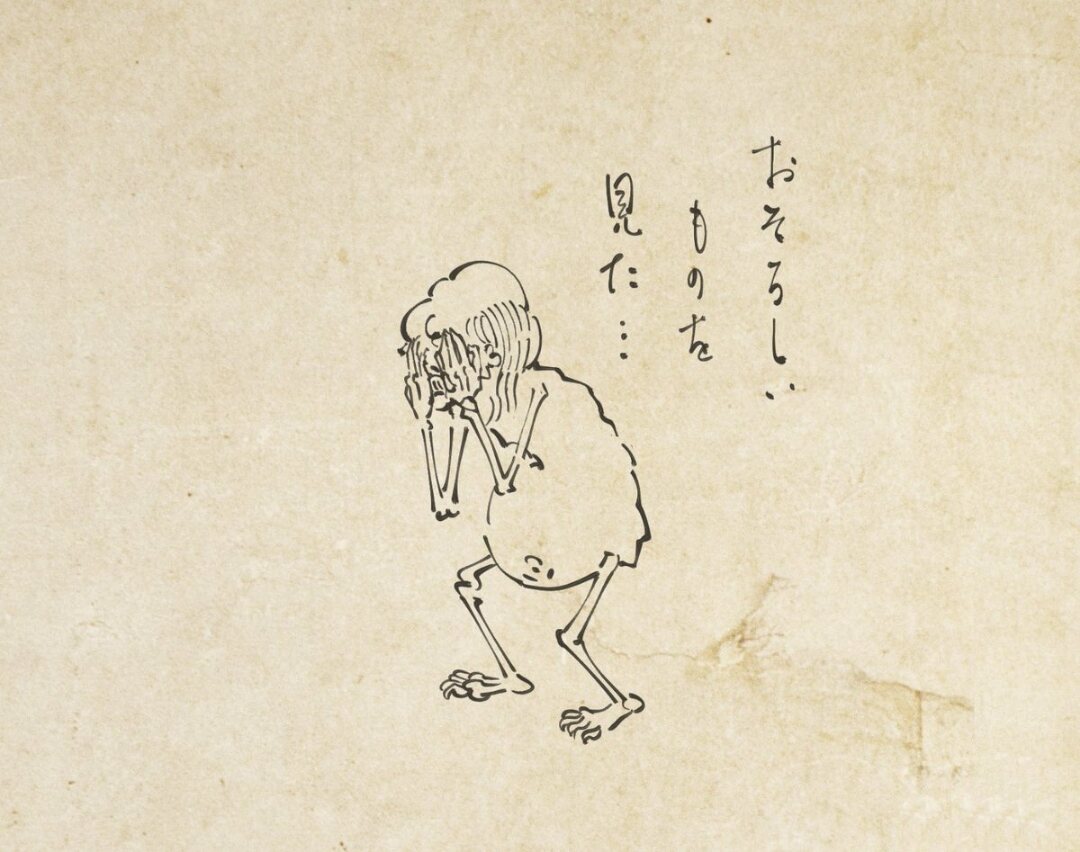 おそろしい
ものを
見た…